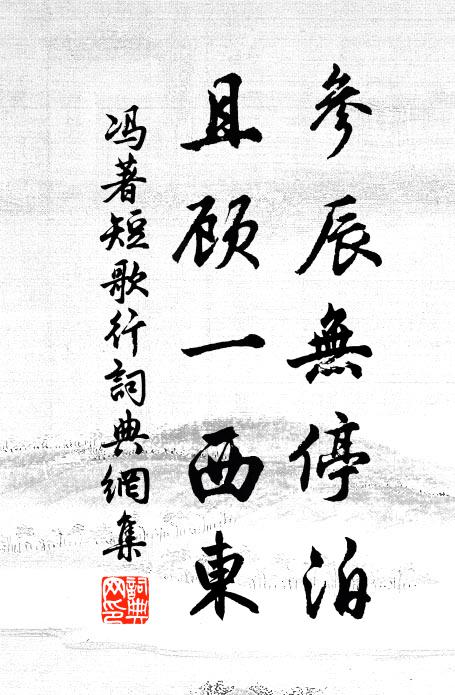 參辰無停泊
且顾一西東
冯著短歌行詞典網集
詞典
网印